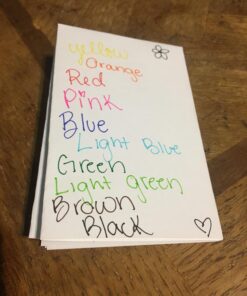 yellow
Orange
Red
Pink
Blue
Light Blue
Green
Light green
Brown
Black